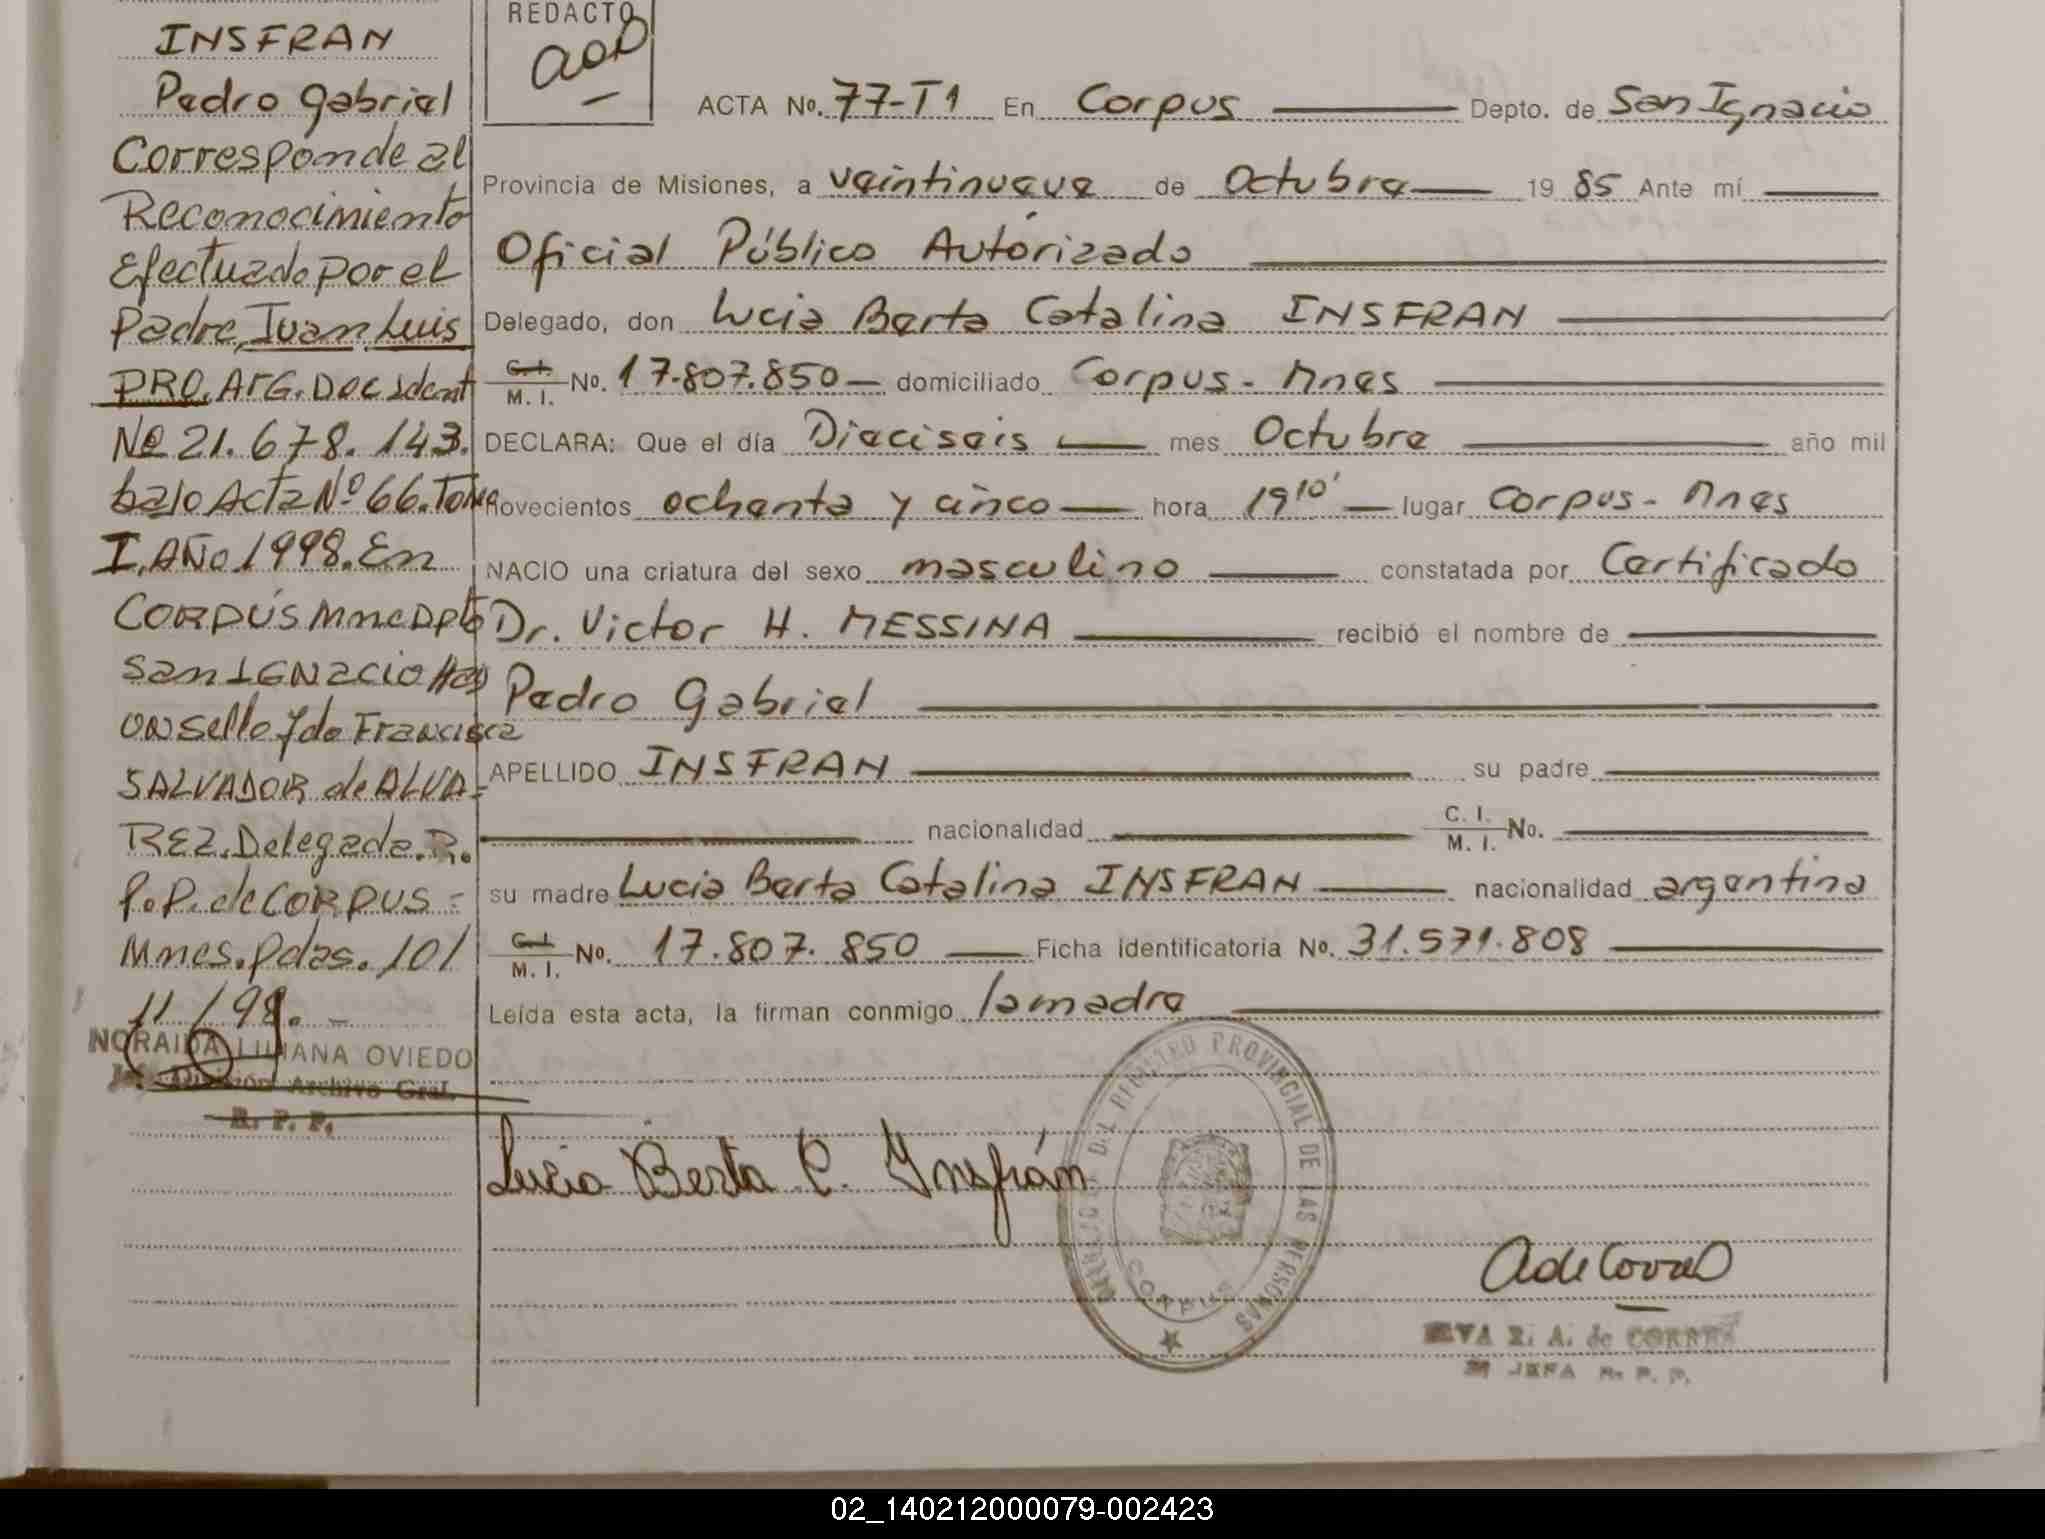 INSFRAN
Pedro Gabriel
Corresponde al
Reconocimiento
Efectuado por el
Padre, Juan Luis
PRO. Arg. Doc Ident
Nº 21.678.143.
bajo Acta Nº 66. Tomo
I. AÑO 1998. En
CORPUS Mnes Dpto
San IGNACIO Hay
UN Sello Fdo Francisca
SALVADOR de ALVA-
REZ. Delegada. R.
P. P. de CORPUS =
Mnes. Pdas. 101
11/98. -
NORAIDA LILIANA OVIEDO
División Archivo Gral.
R. P. P.
REDACTO
ACTA No. 77-T1 En Corpus Depto. de San Ignacio
Provincia de Misiones, a veintinueve de Octubre 1985 Ante mí
Oficial Público Autorizado
Delegado, don Lucia Berta Catalina INSFRAN
C. I. / M. I. No. 17.807.850 domiciliado Corpus - Mnes
DECLARA: Que el día Dieciseis mes Octubre año mil
novecientos ochenta y cinco hora 19 10' lugar Corpus - Mnes
NACIO una criatura del sexo masculino constatada por Certificado
Dr. Victor H. MESSINA recibió el nombre de
Pedro Gabriel
APELLIDO INSFRAN su padre
nacionalidad C. I. / M. I. No.
su madre Lucia Berta Catalina INSFRAN nacionalidad argentina
C. I. / M. I. No. 17.807.850 Ficha identificatoria No. 31.571.808
Leída esta acta, la firman conmigo la madre
Lucia Berta C. Insfrán
REGISTRO PROVINCIAL DE LAS PERSONAS
CORPUS
R. A. de
JEFA R. P. P.
02_140212000079-002423